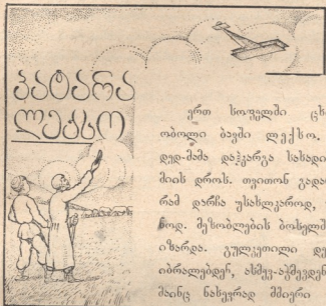 პატარა
ლექსო
ერთ სოფელში ცხ
ობოლი ბავში ლექსო.
დედ-მამა დაჰკარგა სახადი
მიის დროს. თვითონ გადა
რამ დარჩა უსახლკაროდ,
ნოდ. მეზობლების ბოსელში
იზარდა. გულკეთილი დე
იბრალებდენ, ასმევ-აჭმევდენ
მაინც ნახევრად მშიერი